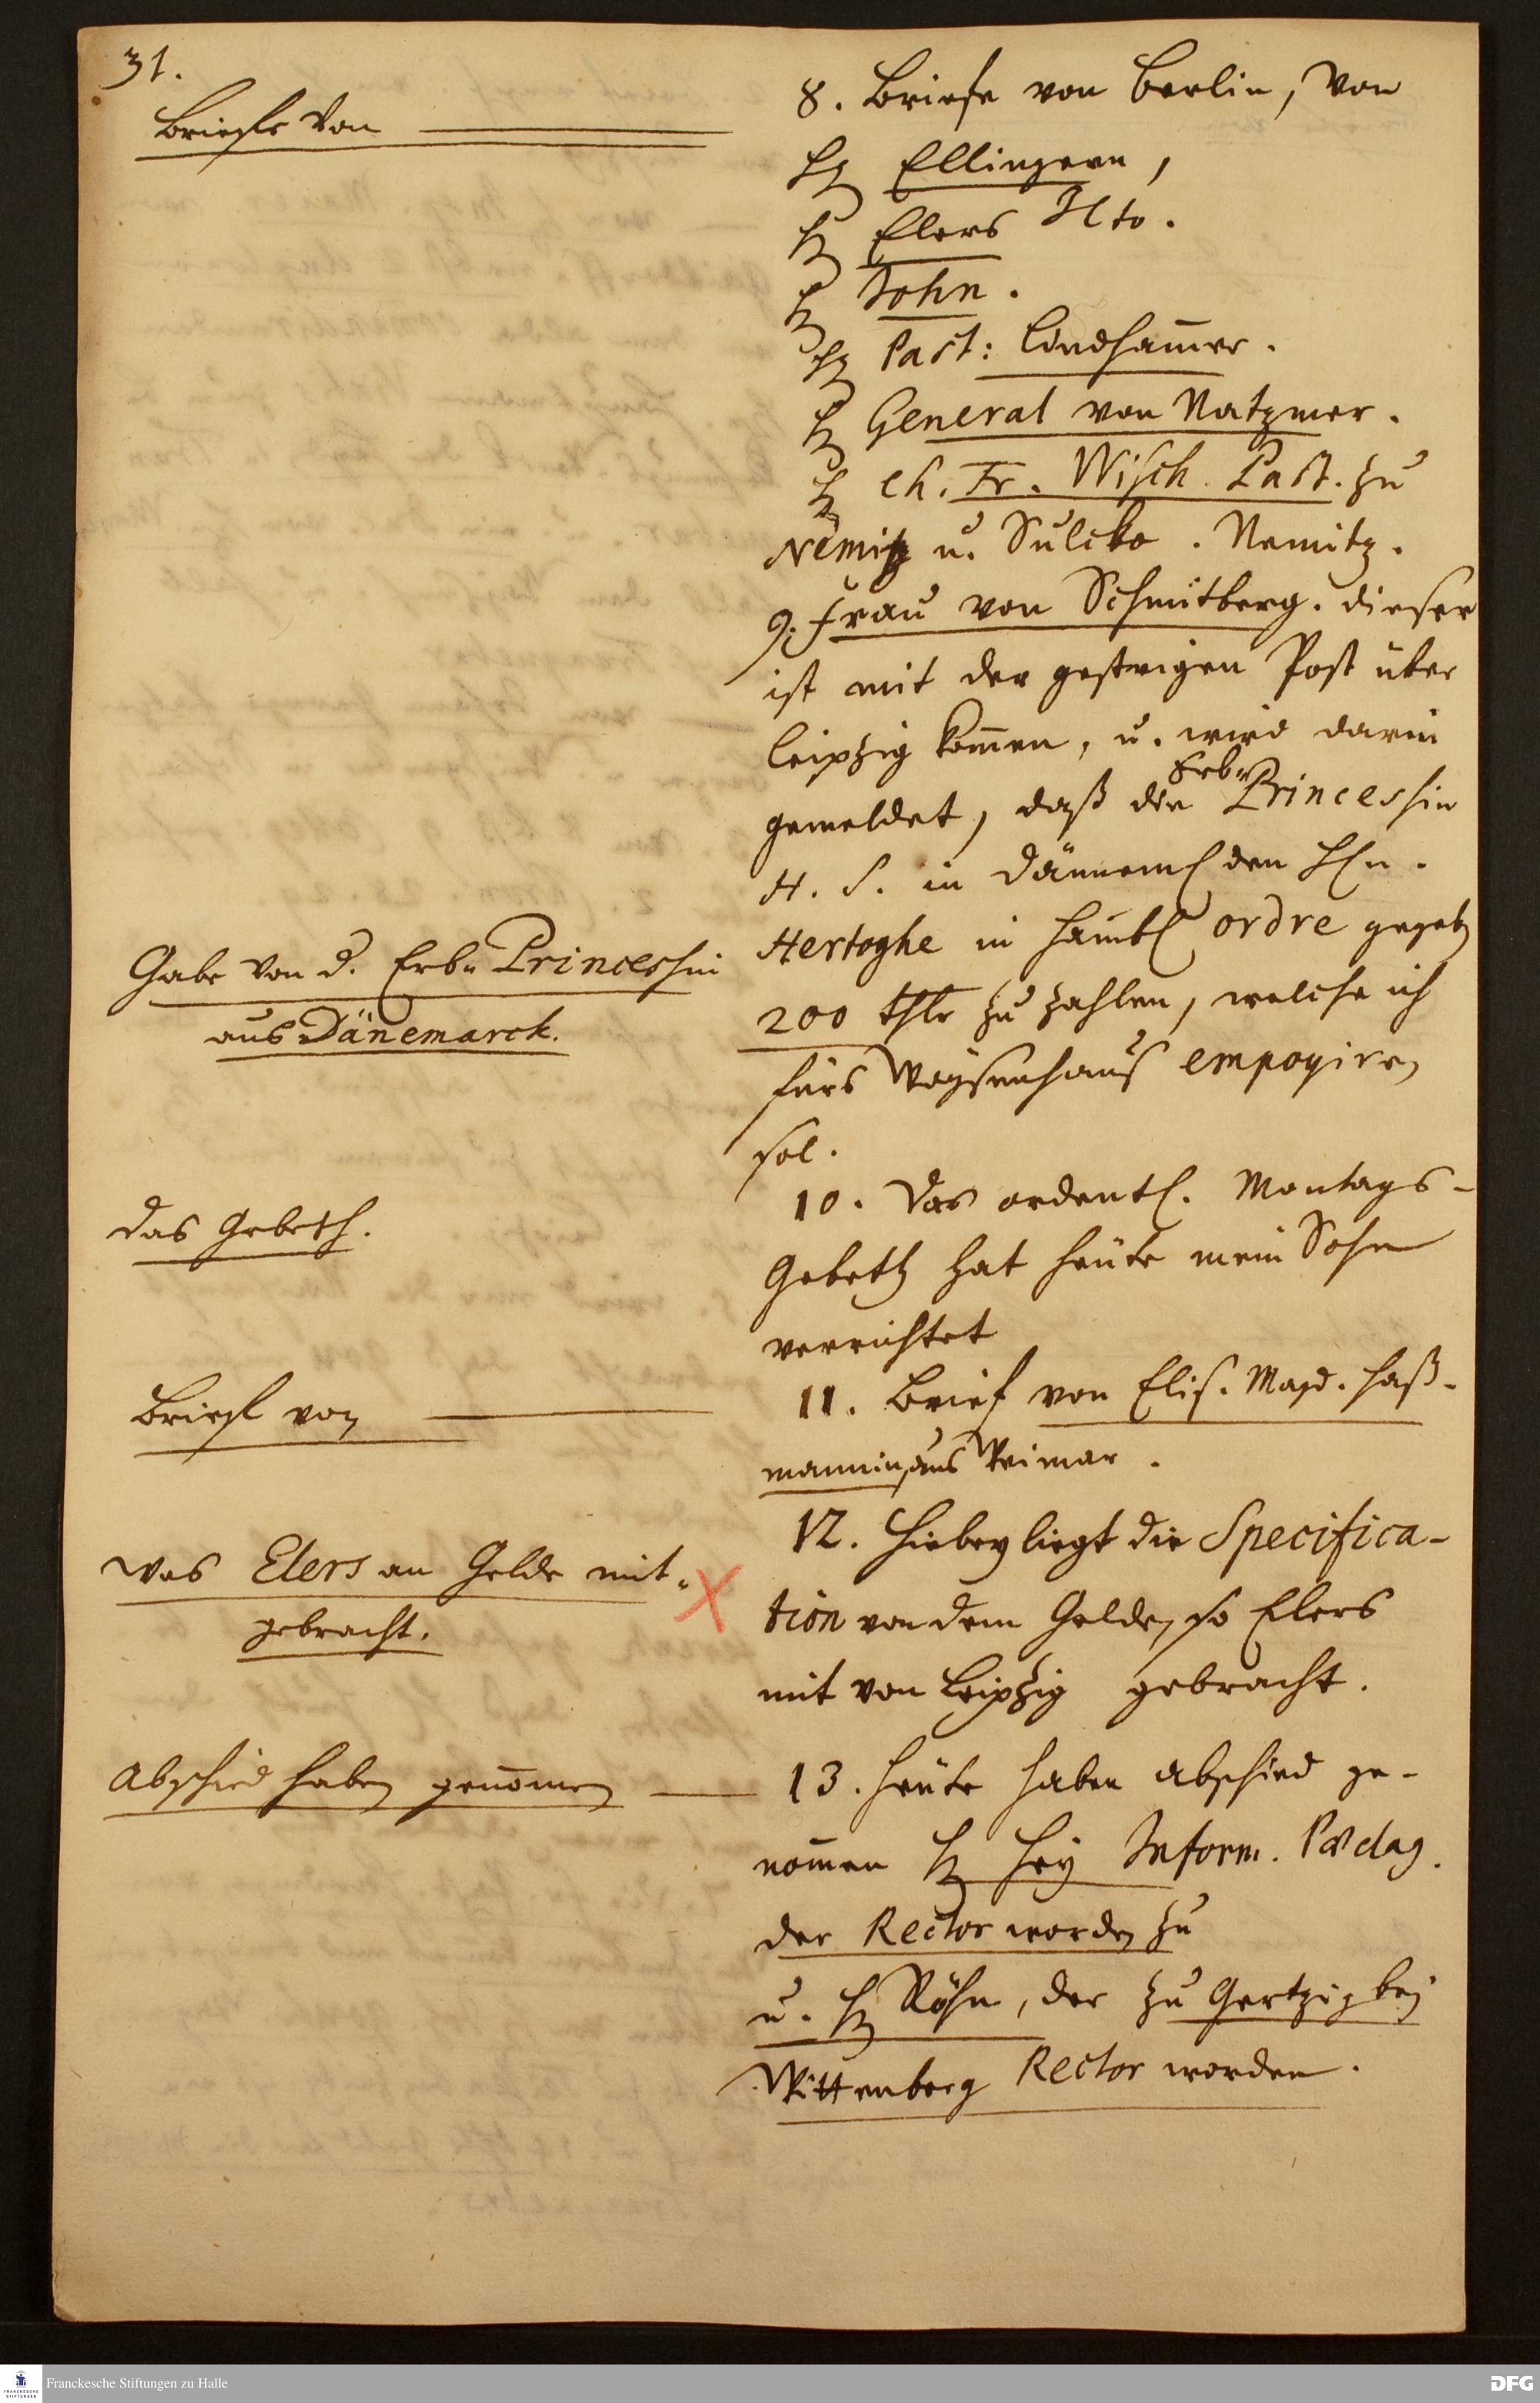 31.
Briefe von
8. Briefe von Berlin, von
H Ellingern,
H Elers
H Sohn.
H Past: Lindhamer.
H General von Natzmer.
H Ch. Fr. Wisch. Past. zu
Nemitz u. Sulcko. Nemitz.
9. Frau von Schmitberg. dieser
ist mit der gestrigen Post über
Leipzig komen, u. wird darin
gemeldet, daß die Erb-Princessin
H. S. in Dännem. den HEn.
Gabe von d. Erb-Princessin
Hertoghe in Hamb. ordre gegeben
aus Dänemarck.
200 thlr zu zahlen, welche ich
fürs Waysenhaus
sol.
Das Gebeth.
10. Das ordentl. Montags-
Gebeth hat heute mein Sohn
verrichtet
Brief von
11. Brief von Elis. Magd. Haß-
mannin, aus Weimar.
12. Hiebey liegt die Specifica-
Was Elers an Gelde mit-
tion von dem Gelde, so Elers
gebracht.
mit von Leipzig gebracht.
Abschied haben genomen
13. Heute haben Abschied ge-
nomen H Hey Inform. Pædag.
der Rector worden zu
u. H Röhn, der zu Gertzig bey
Wittenberg Rector worden.
Franckesche Stiftungen zu Halle
DFG